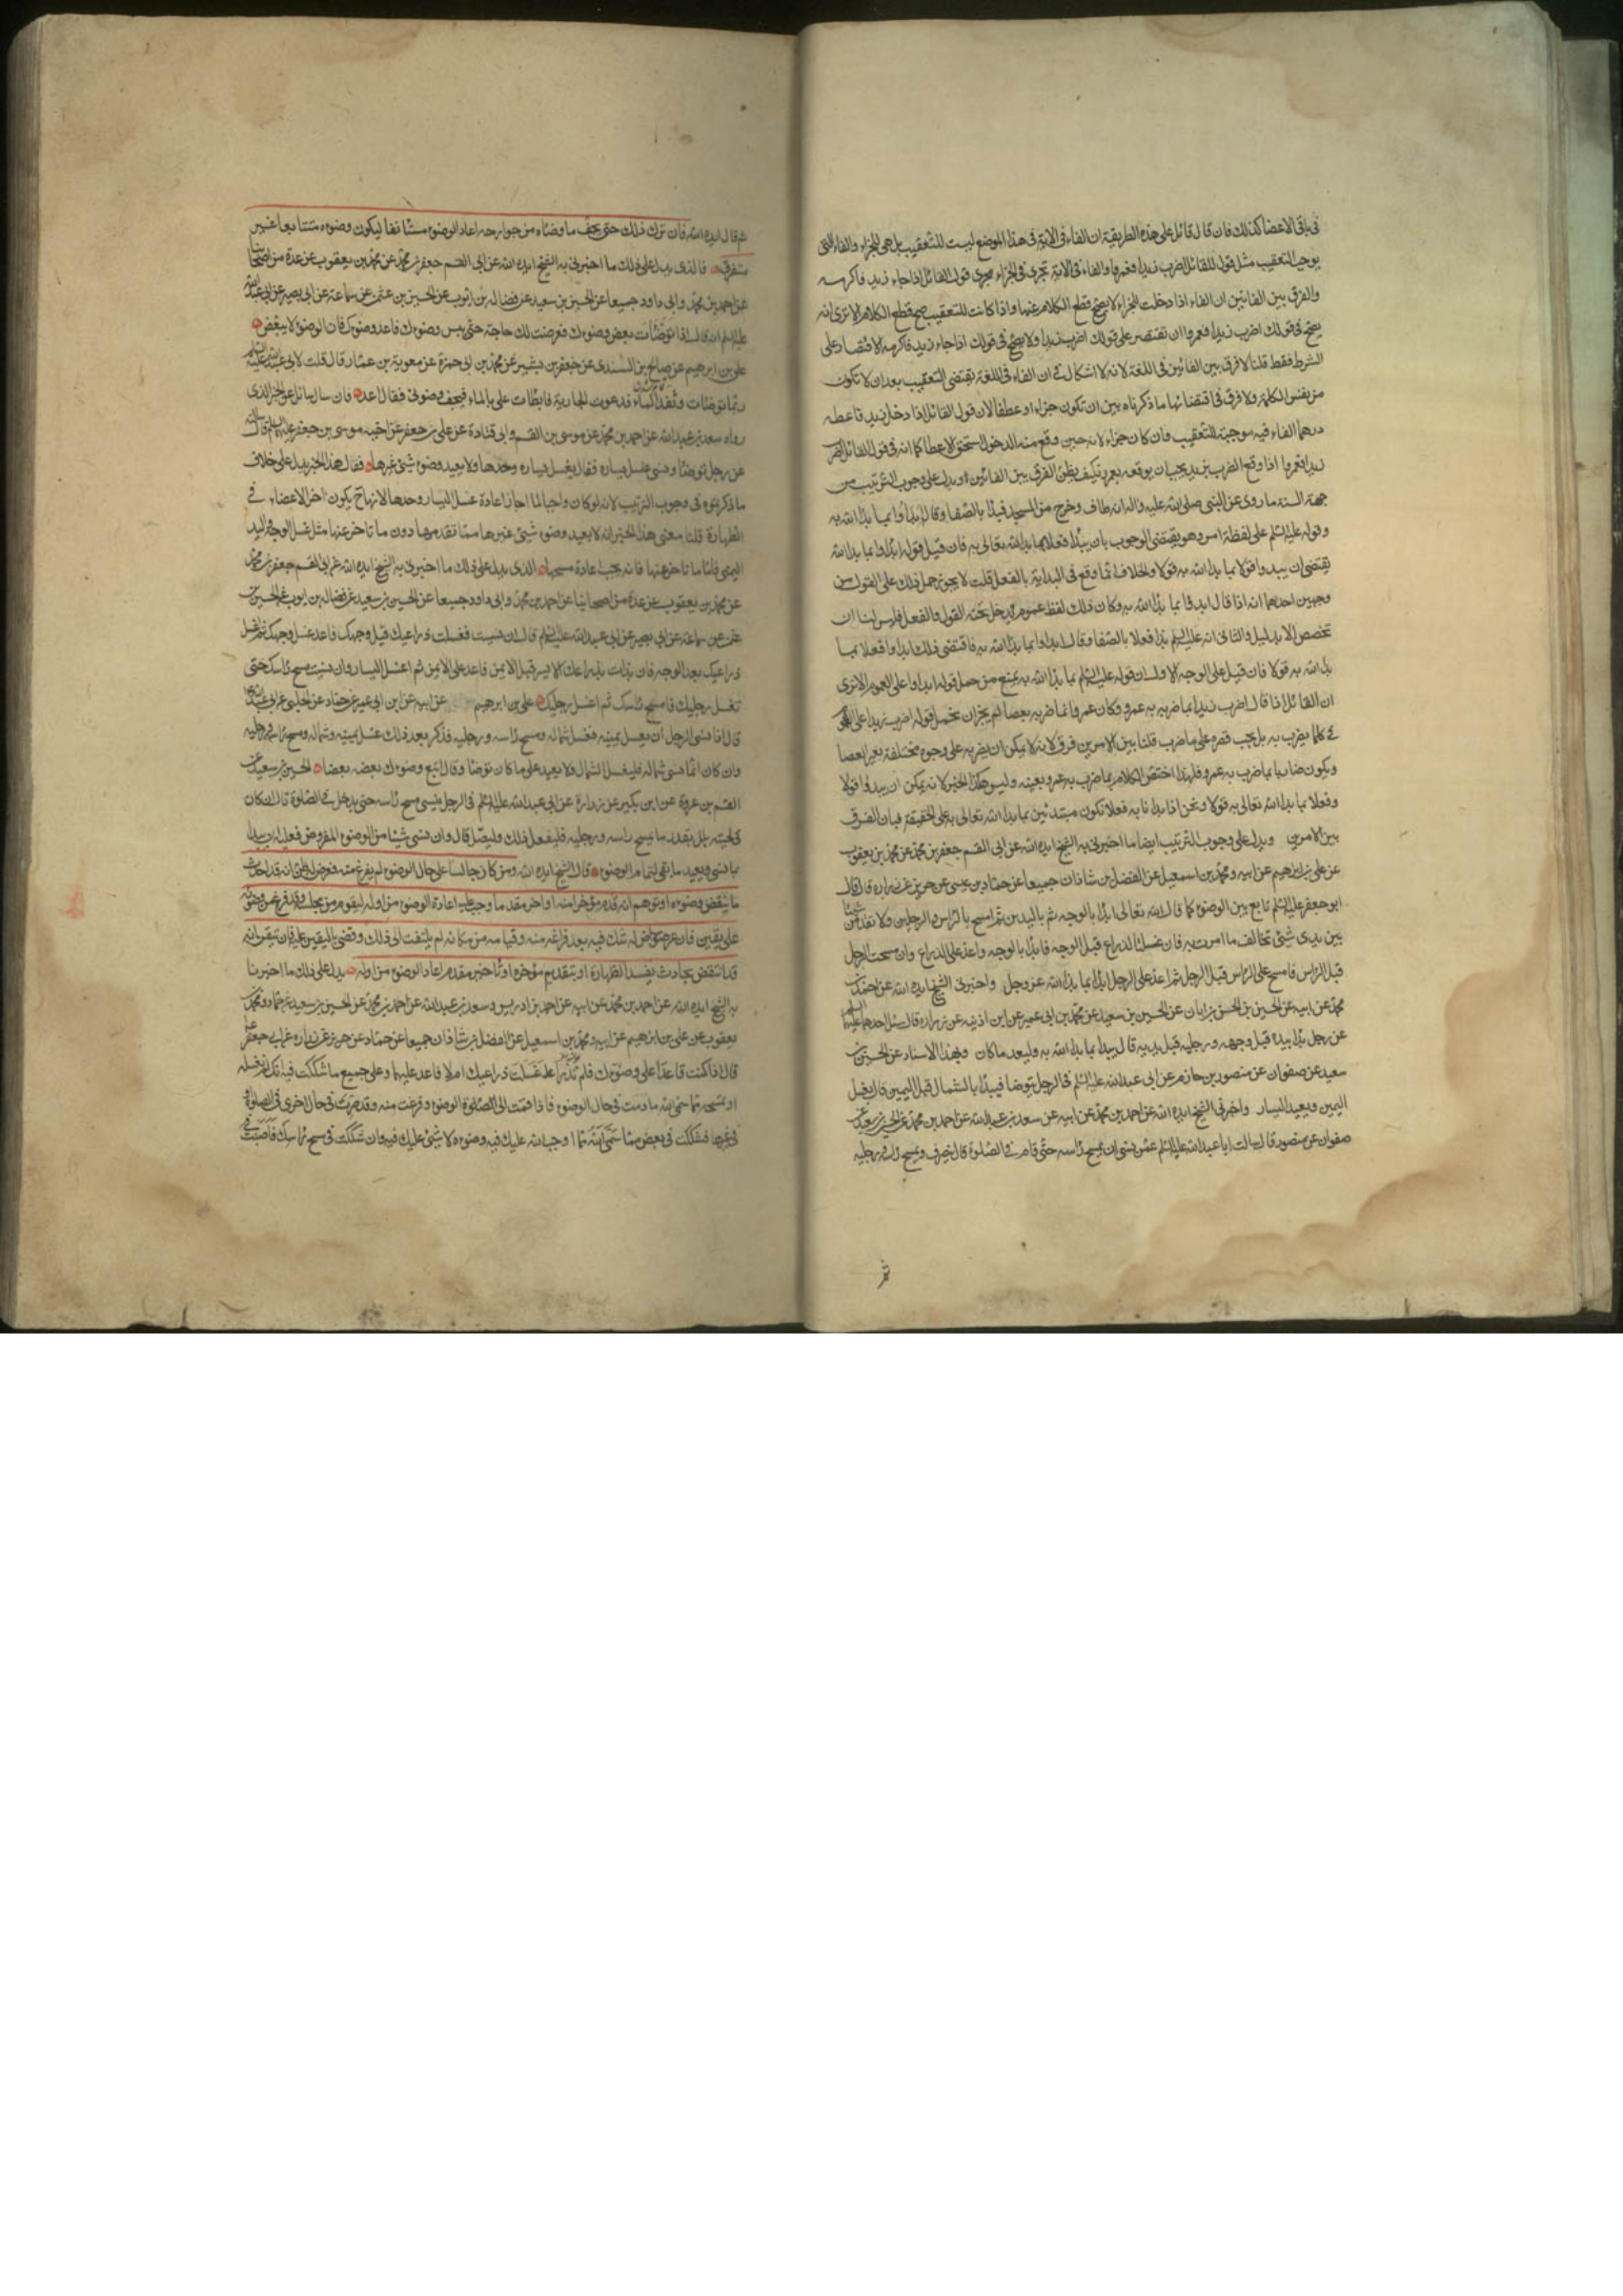 فى باقى الاعضا كذلك فان قال قائل على هذه الطريقة ان الفاء فى الاية فى هذا الموضع ليست للتعقيب بل هى للجزاء والفاء التى
يوجب التعقيب مثل قول القائل اضرب زيدا فعمروا والفاء فى الاية تجرى فى الجزاء مجرى قول القائل اذا جاء زيد فاكرمه
والفرق بين الفائين ان الفاء اذا دخلت للجزاء لا يصح قطع الكلام عنها واذا كانت للتعقيب صح قطع الكلام الا ترى انه
يصح فى قولك اضرب زيدا فعمروا ان تقتصر على قولك اضرب زيدا ولا يصح فى قولك اذا جاء زيد فاكرمه الاقتصاد على
الشرط فقط قلنا لا فرق بين الفائين فى اللغة لانه لا اشكال فى ان الفاء فى اللغة تقتضى التعقيب بعد ان لا تكون
من نفس الكلمة ولا فرق فى اقتضائها ما ذكرناه بين ان تكون جزاء او عطفا لان قول القائل اذا دخل زيد فاعطه
درهما الفاء فيه موجبة للتعقيب وان كان جزاء لانه حين وقع منه الدخول استحق الاعطا كما انه فى قول القائل اضرب
زيدا فعمروا اذا وقع الضرب بزيد يجب ان يوقعه بعمرو فكيف يظن الفرق بين الفائين او يدل على وجوب الترتيب من
جهة السنة ما روى عن النبى صلى الله عليه واله انه طاف وخرج من المسجد فبدا بالصفا وقال ابدأوا بما بدا الله به
وقوله عليه السلم على لفظة امر وهو يقتضى الوجوب بان يبدأ فعلا بما بدا الله تعالى به فان قيل قوله ابدأوا بما بدا الله
يقتضى ان يبدوا قولا بما بدا الله به قولا والخلاف انما وقع فى البداية بالفعل قلت لا يجوز حمل ذلك على القول من
وجهين احدهما انه اذا قال ابدأوا بما بدا الله به وكان ذلك لفظ عموم يدخل تحته القول والفعل فليس لنا ان
تخصص الا بدليل والثانى انه عليه السلم بدا فعلا بالصفا وقال ابدأوا بما بدا الله به فاقتضى ذلك ابدأوا فعلا بما
بدا الله به قولا فان قيل على الوجه الاول ان قوله عليه السلم بما بدا الله به يمنع من حمل قوله ابدأوا على العموم الا ترى
ان القائل اذا قال اضرب زيدا بما ضرب به عمرو وكان عمرو انما ضرب بعصا لم يجز ان تحمل قوله اضرب زيدا على العموم
فى كلما يضرب به بل يجب قصره على ما ضرب قلنا بين الامرين فرق لانه لا يمكن ان يضربه على وجوه مختلفة بغير العصا
ويكون ضاربا بما ضرب به عمرو فلهذا اختص الكلام بما ضرب به عمرو بعينه وليس هكذا الخبر لانه يمكن ان يبدوا قولا
وفعلا بما بدا الله تعالى به قولا ونحن اذا بدانا به فعلا نكون مبتدئين بما بدا الله تعالى به على الحقيقة فبان الفرق
بين الامرين ويدل على وجوب الترتيب ايضا ما اخبرنى به الشيخ ايده الله عن ابى القسم جعفر بن محمد عن محمد بن يعقوب
عن على بن ابراهيم عن ابيه ومحمد بن اسمعيل عن الفضل بن شاذان جميعا عن حماد بن عيسى عن حريز عن زرارة قال قال
ابو جعفر عليه السلم تابع بين الوضوء كما قال الله تعالى ابدأ بالوجه ثم باليدين ثم امسح بالراس والرجلين ولا تقدمن شيئا
بين يدى شئ تخالف ما امرت به فان غسلت الذراع قبل الوجه فابدأ بالوجه واعد على الذراع وان مسحت الرجل
قبل الراس فامسح على الراس قبل الرجل ثم اعد على الرجل ابدأ بما بدأ الله عز وجل واخبرنى الشيخ ايده الله عن احمد بن
محمد عن ابيه عن الحسين بن الحسن بن ابان عن الحسين بن سعيد عن محمد بن ابى عمير عن ابن اذينه عن زرارة قال سئل احدهما عليهما السلم
عن رجل بدأ بيده قبل وجهه ورجليه قبل يديه قال يبدأ بما بدأ الله به وليعد ما كان وبهذا الاسناد عن الحسين بن
سعيد عن صفوان عن منصور بن حازم عن ابى عبد الله عليه السلم فى الرجل يتوضا فيبدأ بالشمال قبل اليمين قال يغسل
اليمين ويعيد اليسار واخبرنى الشيخ ايده الله عن احمد بن محمد عن ابيه عن سعد بن عبد الله عن احمد بن محمد عن الحسين بن سعيد عن
صفوان عن منصور قال سالت ابا عبد الله عليه السلم عمن نسى ان يمسح راسه حتى قام فى الصلوة قال ينصرف ويمسح راسه ورجليه
ثم
ثم قال ايده الله فان ترك ذلك حتى يجف ما وضاه من جوارحه اعاد الوضوء مستانفا ليكون وضوءه متتابعا غير
متفرق فالذى يدل على ذلك ما اخبرنى به الشيخ ايده الله عن ابى القسم جعفر بن محمد عن محمد بن يعقوب عن عدة من اصحابنا
عن احمد بن محمد وابى داود جميعا عن الحسين بن سعيد عن فضالة بن ايوب عن الحسين بن عثمن عن سماعة عن ابى بصير عن ابى عبد الله
عليه السلم انه قال اذا توضأت بعض وضوءك فعرضت لك حاجة حتى يبس وضوءك فاعد وضوءك فان الوضوء لا يبعض
على بن ابرهيم عن صالح بن السندى عن جعفر بن بشير عن محمد بن ابى حمزة عن معوية بن عمار قال قلت لابى عبد الله عليه السلم
ربما توضات ونفد الماء فدعوت الجارية فابطات على بالماء فيجف وضوئى فقال اعد فان سال سائل عن الخبر الذى
رواه سعد بن عبد الله عن احمد بن محمد عن موسى بن القسم وابى قتادة عن على بن جعفر عن اخيه موسى بن جعفر عليهما السلم قال سالته
عن رجل توضا ونسى غسل يساره فقال يغسل يساره وحدها ولا يعيد وضوء شئ غيرها فقال هذا الخبر يدل على خلاف
ما ذكرتموه فى وجوب الترتيب لانه لو كان واجبا لما اجاز اعادة غسل اليسار وحدها لانها يكون اخر الاعضاء فى
الطهارة قلنا معنى هذا الخبر انه لا يعيد وضوء شئ غيرها مما تقدمها دون ما تاخر عنها مثل غسل الوجه واليد
اليمنى فاما ما تاخر عنها فانه يجب اعادة مسحها الذى يدل على ذلك ما اخبرنى به الشيخ ايده الله عن ابى القسم جعفر بن محمد
عن محمد بن يعقوب عن عدة من اصحابنا عن احمد بن محمد وابى داود جميعا عن الحسين بن سعيد عن فضالة بن ايوب عن الحسين بن
عثمن عن سماعة عن ابى بصير عن ابى عبد الله عليه السلم قال ان نسيت فغسلت ذراعيك قبل وجهك فاعد غسل وجهك ثم اغسل
ذراعيك بعد الوجه فان بدات بذراعك الايسر قبل الايمن فاعد على الايمن ثم اغسل اليسار وان نسيت مسح راسك حتى
تغسل رجليك فامسح راسك ثم اغسل رجليك على بن ابرهيم عن ابيه عن ابن ابى عمير عن حماد عن الحلبى عن ابى عبد الله
قال اذا نسى الرجل ان يغسل يمينه فغسل شماله ومسح راسه ورجليه فذكر بعد ذلك غسل يمينه وشماله ومسح راسه ورجليه
وان كان انما نسى شماله فليغسل الشمال ولا يعيد على ما كان توضا وقال اتبع وضوءك بعضه بعضا الحسين بن سعيد عن
القسم بن عروة عن ابن بكير عن زرارة عن ابى عبد الله عليه السلم فى الرجل ينسى مسح راسه حتى يدخل فى الصلوة قال ان كان
فى لحيته بلل بقدر ما يمسح راسه ورجليه فليفعل ذلك وليصل قال وان نسى شيئا من الوضوء المفروض فعليه ان يبدا
بما نسى ويعيد ما بقى لتمام الوضوء قال الشيخ ايده الله ومن كان جالسا على حال الوضوء لم يفرغ منه فعرض له ظن انه قد احدث
ما ينقض وضوءه او توهم انه قدم مؤخرا منه او اخر مقدما وجب عليه اعادة الوضوء من اوله ليقوم من مجلسه وقد فرغ من وضوئه
على يقين فان عرض له شك فيه بعد فراغه منه وقيامه من مكانه لم يلتفت الى ذلك وقضى باليقين عليه فان تيقن انه
قد انتقض بحادث يفسد الطهارة او بتقديم مؤخر او تاخير مقدم اعاد الوضوء من اوله يدل على ذلك ما اخبرنا
به الشيخ ايده الله عن احمد بن محمد عن ابيه عن احمد بن ادريس وسعد بن عبد الله عن احمد بن محمد عن الحسين بن سعيد عن حماد ومحمد بن
يعقوب عن على بن ابرهيم عن ابيه ومحمد بن اسمعيل عن الفضل بن شاذان جميعا عن حماد عن حريز عن زرارة عن ابى جعفر
قال اذا كنت قاعدا على وضوءك فلم تدر اغسلت ذراعيك ام لا فاعد عليهما وعلى جميع ما شككت فيه انك لم تغسله
او تمسحه مما سمى الله ما دمت فى حال الوضوء فاذا قمت الى الصلوة الوضوء وفرغت منه وقد صرت فى حال اخرى فى الصلوة او
فى غيرها فشككت فى بعض مما سمى الله مما اوجب الله عليك فيه وضوءه لا شئ عليك فيه وان شككت فى مسح راسك فاصبت فى